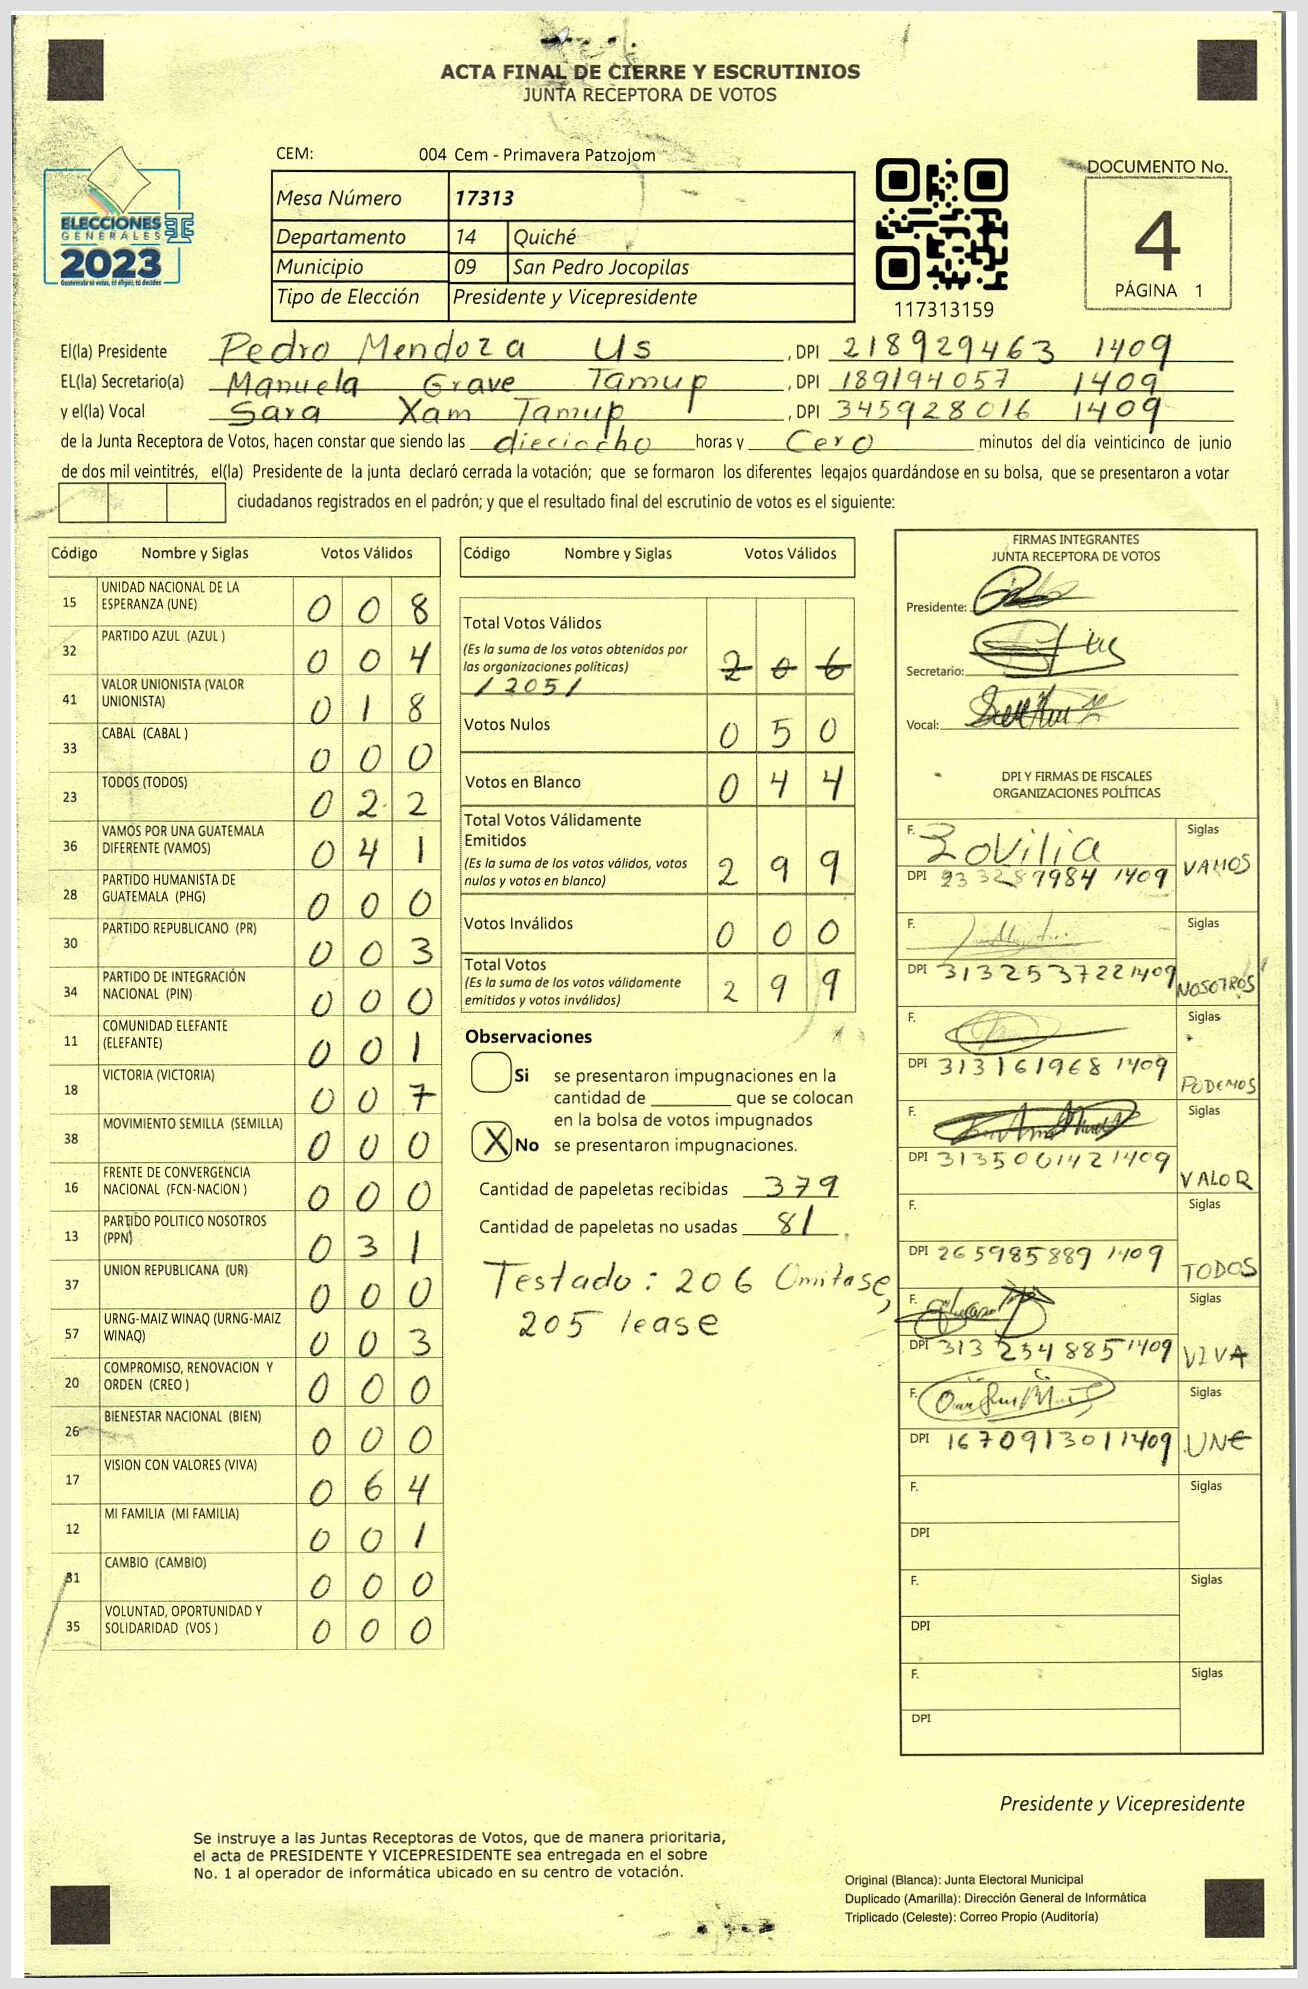 ACTA FINAL DE CIERRE Y ESCRUTINIOS
JUNTA RECEPTORA DE VOTOS
CEM: 004 Cem - Primavera Patzojom
ELECCIONES
GENERALES
2023
Mesa Número 17313
Departamento 14 Quiché
Municipio 09 San Pedro Jocopilas
Tipo de Elección Presidente y Vicepresidente
117313159
DOCUMENTO No.
4
PÁGINA 1
El(la) Presidente Pedro Mendoza Us , DPI 218929463 1409
EL(la) Secretario(a) Manuela Grave Tamup , DPI 189194057 1409
y el(la) Vocal Sara Xam Tamup , DPI 345928016 1409
de la Junta Receptora de Votos, hacen constar que siendo las dieciocho horas y Cero minutos del día veinticinco de junio
de dos mil veintitrés, el(la) Presidente de la junta declaró cerrada la votación; que se formaron los diferentes legajos guardándose en su bolsa, que se presentaron a votar
ciudadanos registrados en el padrón; y que el resultado final del escrutinio de votos es el siguiente:
Código Nombre y Siglas Votos Válidos
15 UNIDAD NACIONAL DE LA ESPERANZA (UNE) 0 0 8
32 PARTIDO AZUL (AZUL ) 0 0 4
41 VALOR UNIONISTA (VALOR UNIONISTA) 0 1 8
33 CABAL (CABAL ) 0 0 0
23 TODOS (TODOS) 0 2 2
36 VAMOS POR UNA GUATEMALA DIFERENTE (VAMOS) 0 4 1
28 PARTIDO HUMANISTA DE GUATEMALA (PHG) 0 0 0
30 PARTIDO REPUBLICANO (PR) 0 0 3
34 PARTIDO DE INTEGRACIÓN NACIONAL (PIN) 0 0 0
11 COMUNIDAD ELEFANTE (ELEFANTE) 0 0 1
18 VICTORIA (VICTORIA) 0 0 7
38 MOVIMIENTO SEMILLA (SEMILLA) 0 0 0
16 FRENTE DE CONVERGENCIA NACIONAL (FCN-NACION ) 0 0 0
13 PARTIDO POLITICO NOSOTROS (PPN) 0 3 1
37 UNION REPUBLICANA (UR) 0 0 0
57 URNG-MAIZ WINAQ (URNG-MAIZ WINAQ) 0 0 3
20 COMPROMISO, RENOVACION Y ORDEN (CREO ) 0 0 0
26 BIENESTAR NACIONAL (BIEN) 0 0 0
17 VISION CON VALORES (VIVA) 0 6 4
12 MI FAMILIA (MI FAMILIA) 0 0 1
31 CAMBIO (CAMBIO) 0 0 0
35 VOLUNTAD, OPORTUNIDAD Y SOLIDARIDAD (VOS ) 0 0 0
Código Nombre y Siglas Votos Válidos
Total Votos Válidos
(Es la suma de los votos obtenidos por
las organizaciones políticas) 2 0 6
/ 205 /
Votos Nulos 0 5 0
Votos en Blanco 0 4 4
Total Votos Válidamente
Emitidos
(Es la suma de los votos válidos, votos
nulos y votos en blanco) 2 9 9
Votos Inválidos 0 0 0
Total Votos
(Es la suma de los votos válidamente
emitidos y votos inválidos) 2 9 9
Observaciones
Si se presentaron impugnaciones en la
cantidad de ________ que se colocan
en la bolsa de votos impugnados
X No se presentaron impugnaciones.
Cantidad de papeletas recibidas 379
Cantidad de papeletas no usadas 81
Testado: 206 Omitase,
205 lease
FIRMAS INTEGRANTES
JUNTA RECEPTORA DE VOTOS
Presidente:
Secretario:
Vocal:
DPI Y FIRMAS DE FISCALES
ORGANIZACIONES POLÍTICAS
F. Lovilia Siglas
DPI 233289984 1409 VAMOS
F. Siglas
DPI 313253722 1409 NOSOTROS
F. Siglas
DPI 313161968 1409 PODEMOS
F. Siglas
DPI 313500142 1409 VALOR
F. Siglas
DPI 265985889 1409 TODOS
F. Siglas
DPI 313234885 1409 VIVA
F. Siglas
DPI 167091301 1409 UNE
F. Siglas
DPI
F. Siglas
DPI
F. Siglas
DPI
Presidente y Vicepresidente
Se instruye a las Juntas Receptoras de Votos, que de manera prioritaria,
el acta de PRESIDENTE Y VICEPRESIDENTE sea entregada en el sobre
No. 1 al operador de informática ubicado en su centro de votación.
Original (Blanca): Junta Electoral Municipal
Duplicado (Amarilla): Dirección General de Informática
Triplicado (Celeste): Correo Propio (Auditoría)